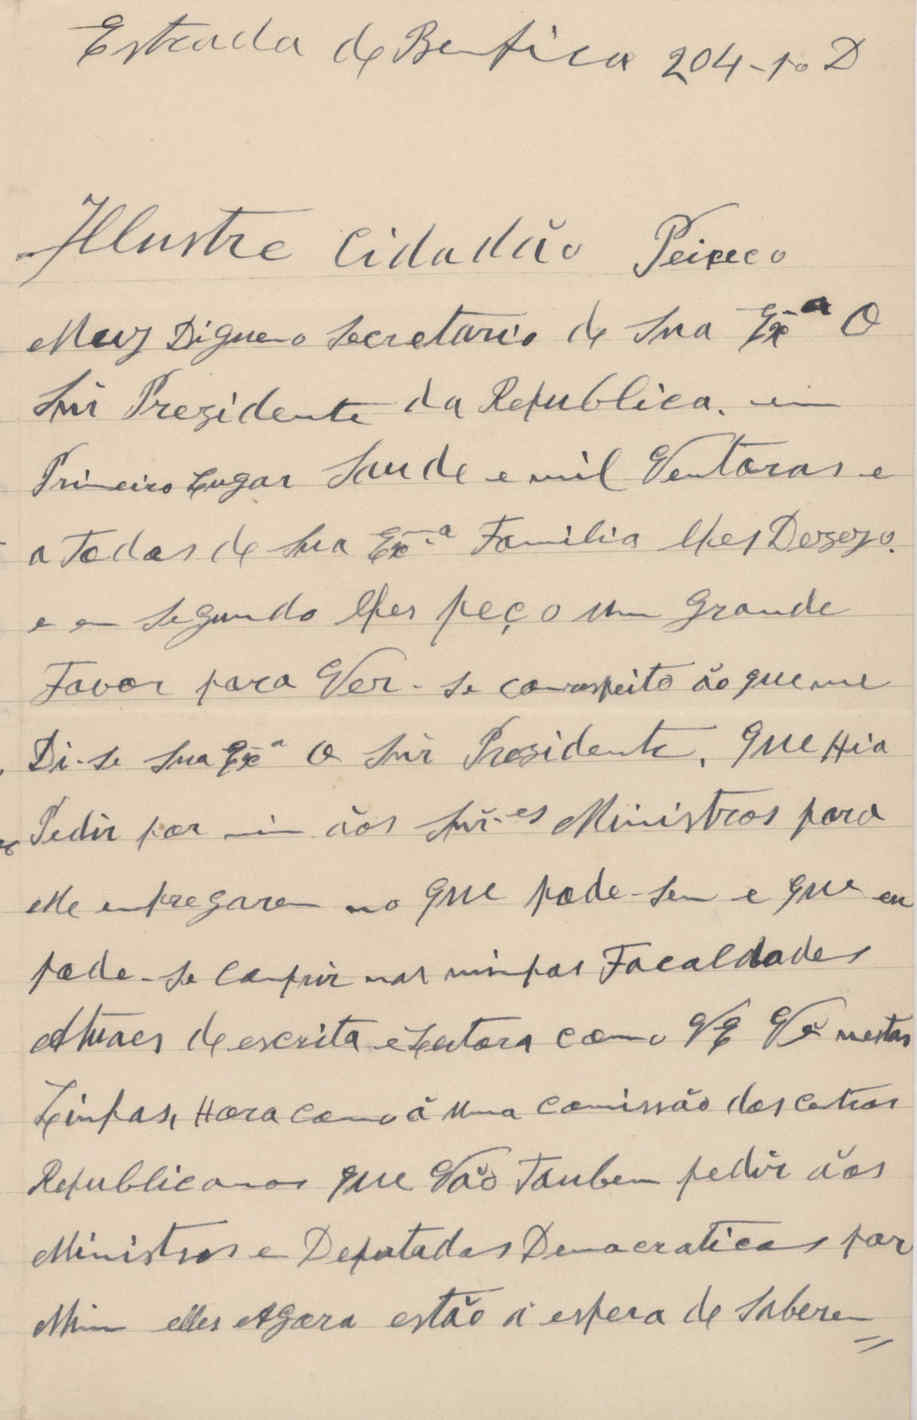 Estrada de Benfica 204-1º D
Illustre Cidadão
Muy Digueno Secretario de Sua Exª O
Snr Prezidente da Republica. em
Primeiro Lugar Saude e mil Venturas e
a Todos de Sua Exª Familia lhes Dezejo.
e em Segundo lhes peço um Grande
Favor para Ver-se com respeito ão que me
Di-se Sua Exª O Snr Presidente, que Hia
Pedir por mim ãos Snr.es Ministros para
Me empregarem no que pode-sem e que eu
pode-se Comprir nas minhas Facaldades
Atuaes de escrita e Leitora como Vê nestas
Linhas, Hora como á uma comissão dos Centros
Republicanos que Vão Tambem pedir ãos
Ministros e Deputados Democraticos por
Mim elles Agora estão á espera de Saberem